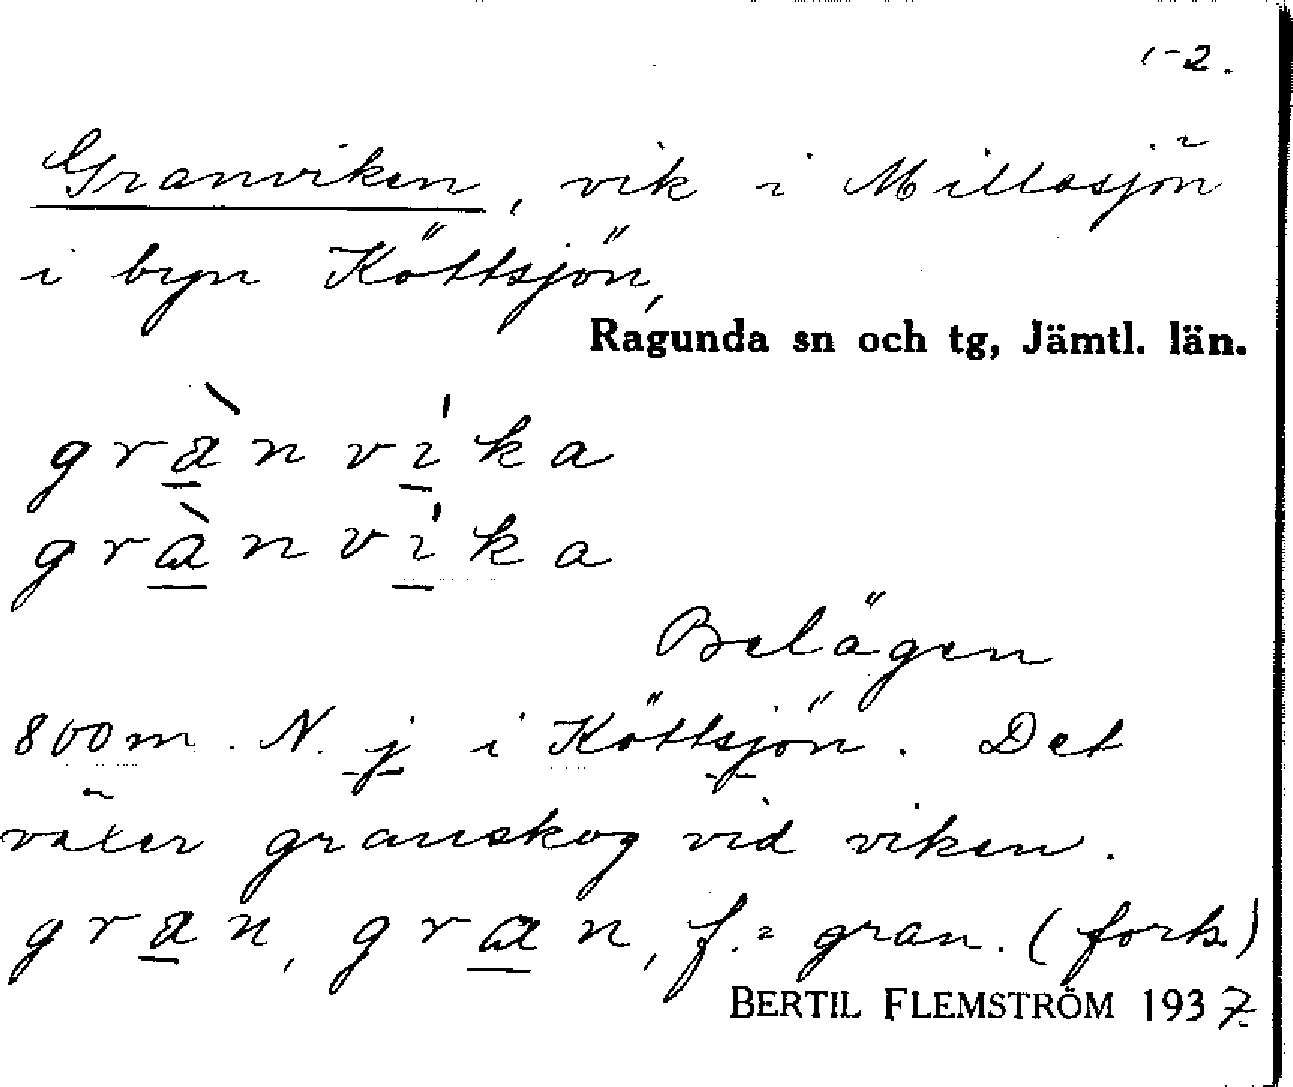 1-2.
Granviken, vik i Millosjön
i byn Köttsjön,
Ragunda sn och tg, Jämtl. län.
grànvíka
grànvíka
Belägen
800 m. N. j i Köttsjön. Det
växer granskog vid viken.
gran, gran, f. = gran. (forts.)
BERTIL FLEMSTRÖM 1937